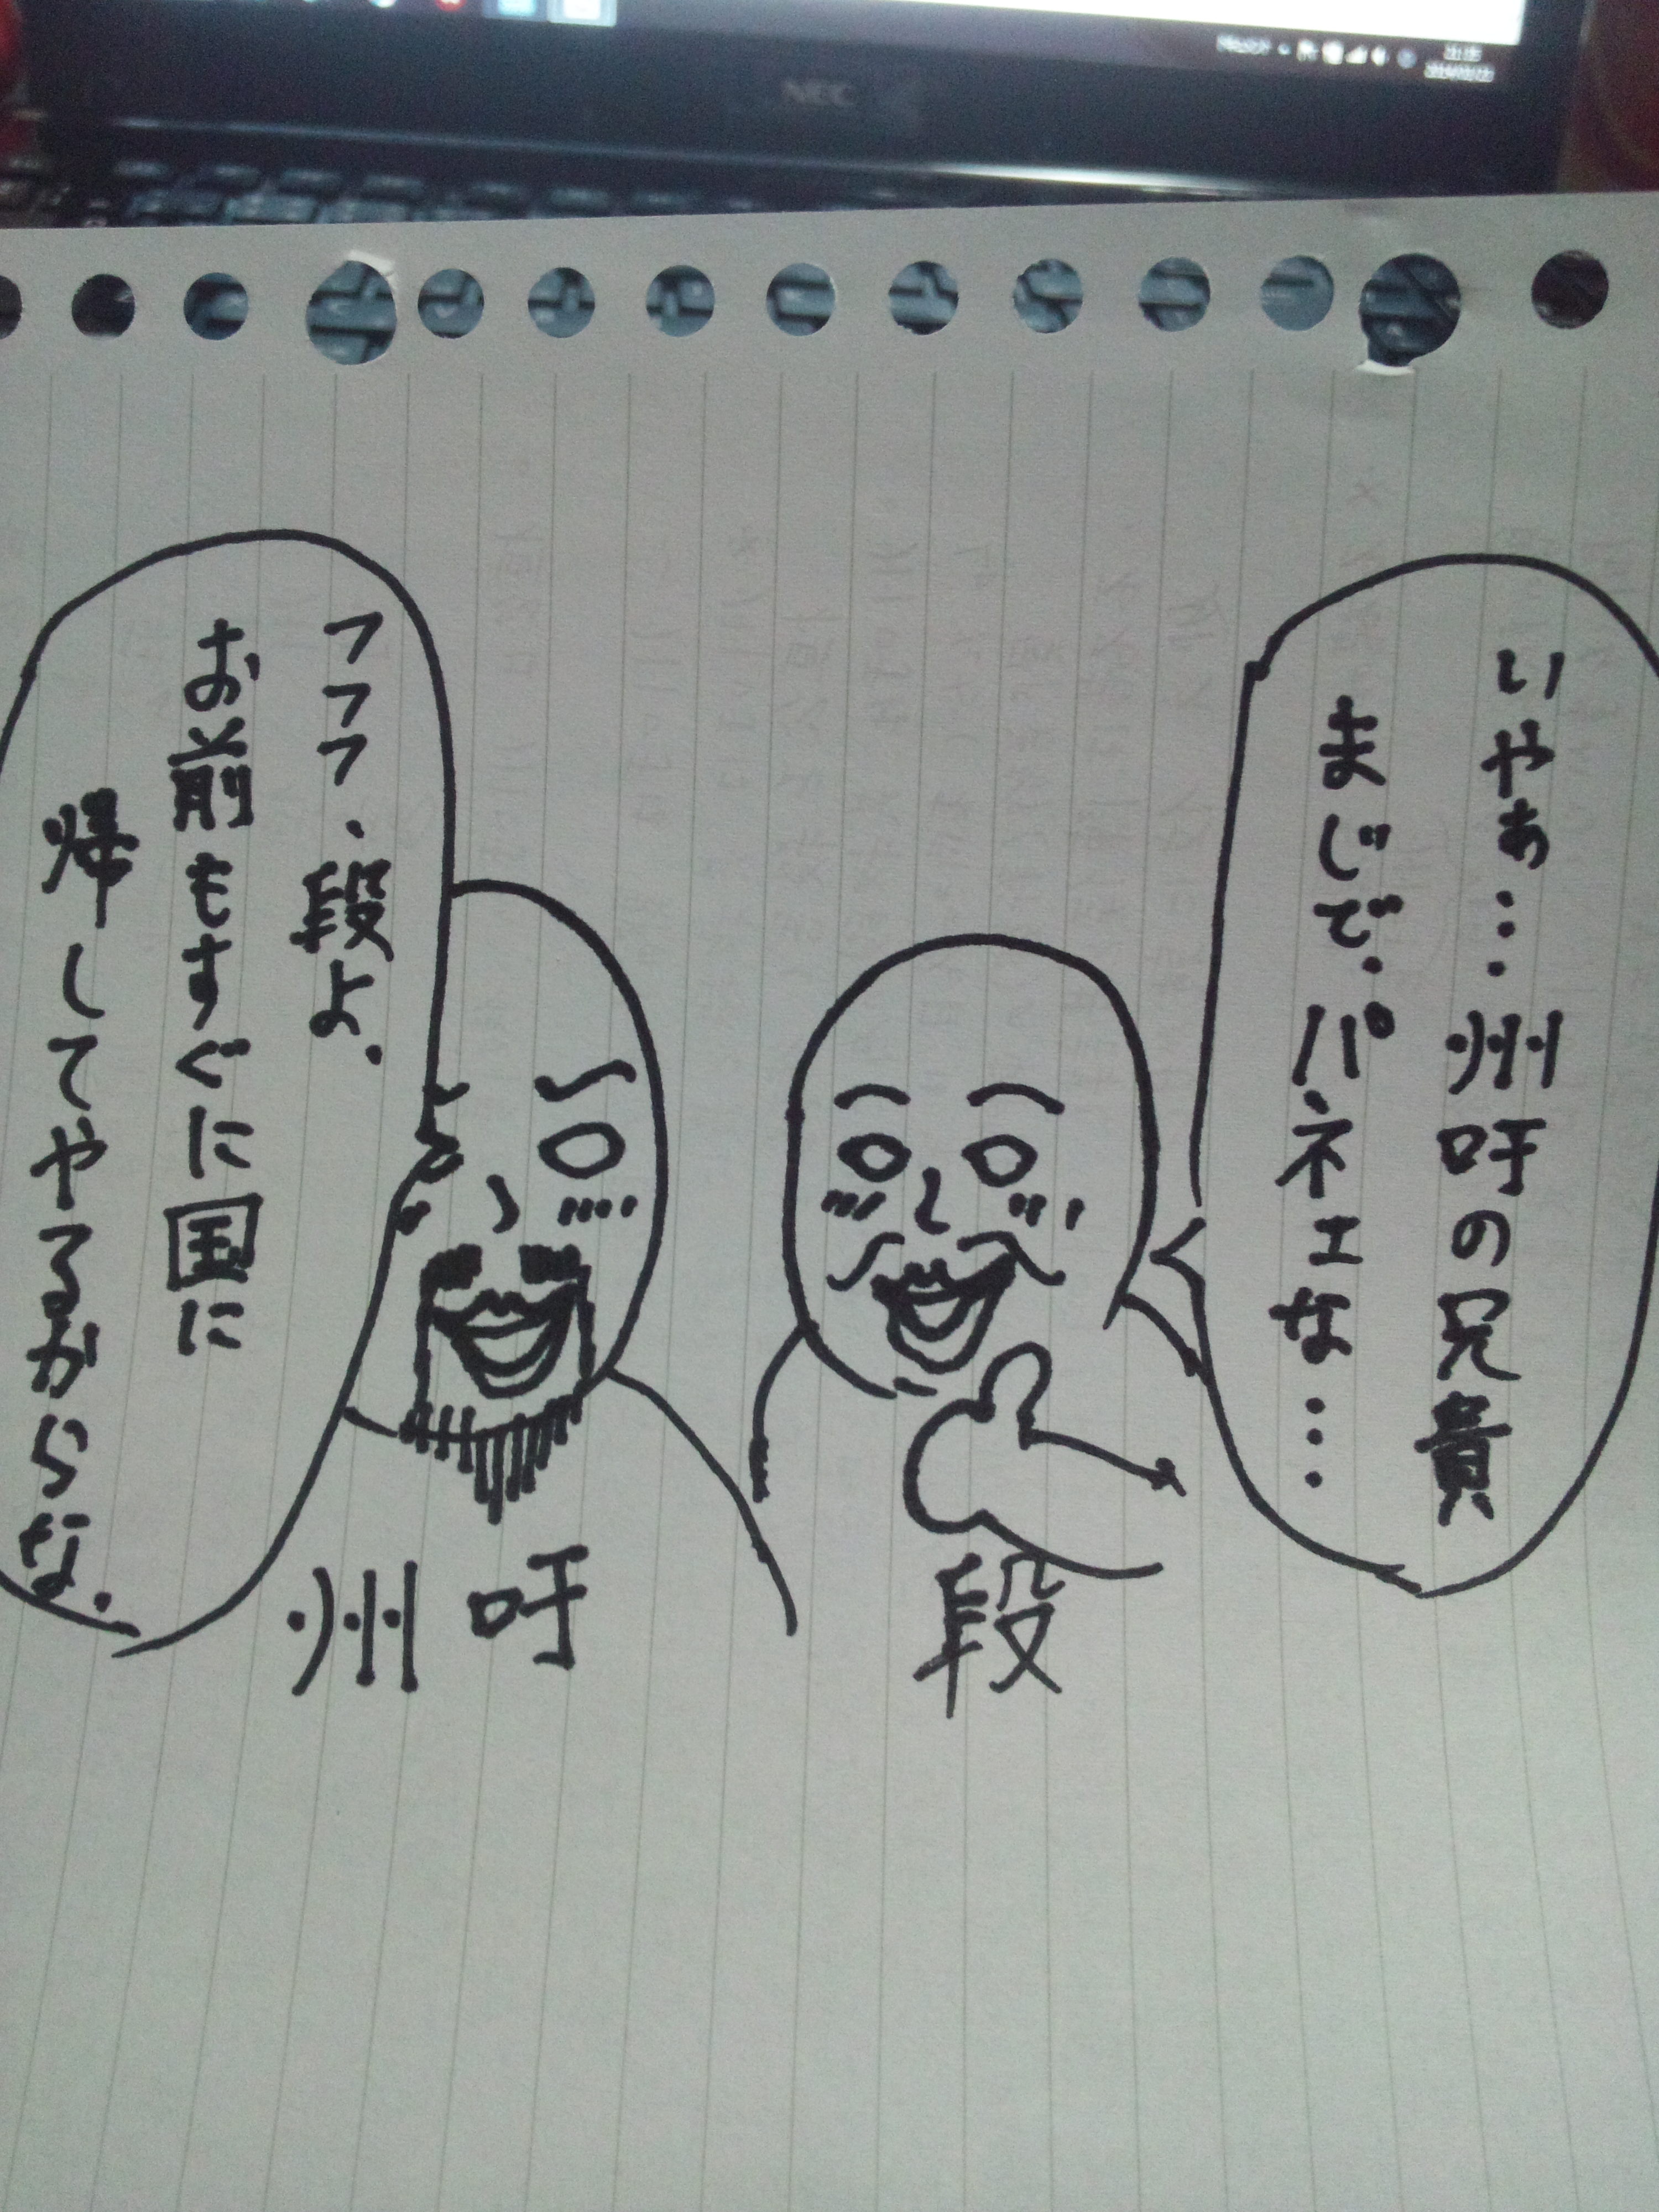 NEC
いやぁ…州吁の兄貴
まじで.パネェな…
フフフ、段よ.
お前もすぐに国に
帰してやるからな.
段
州吁